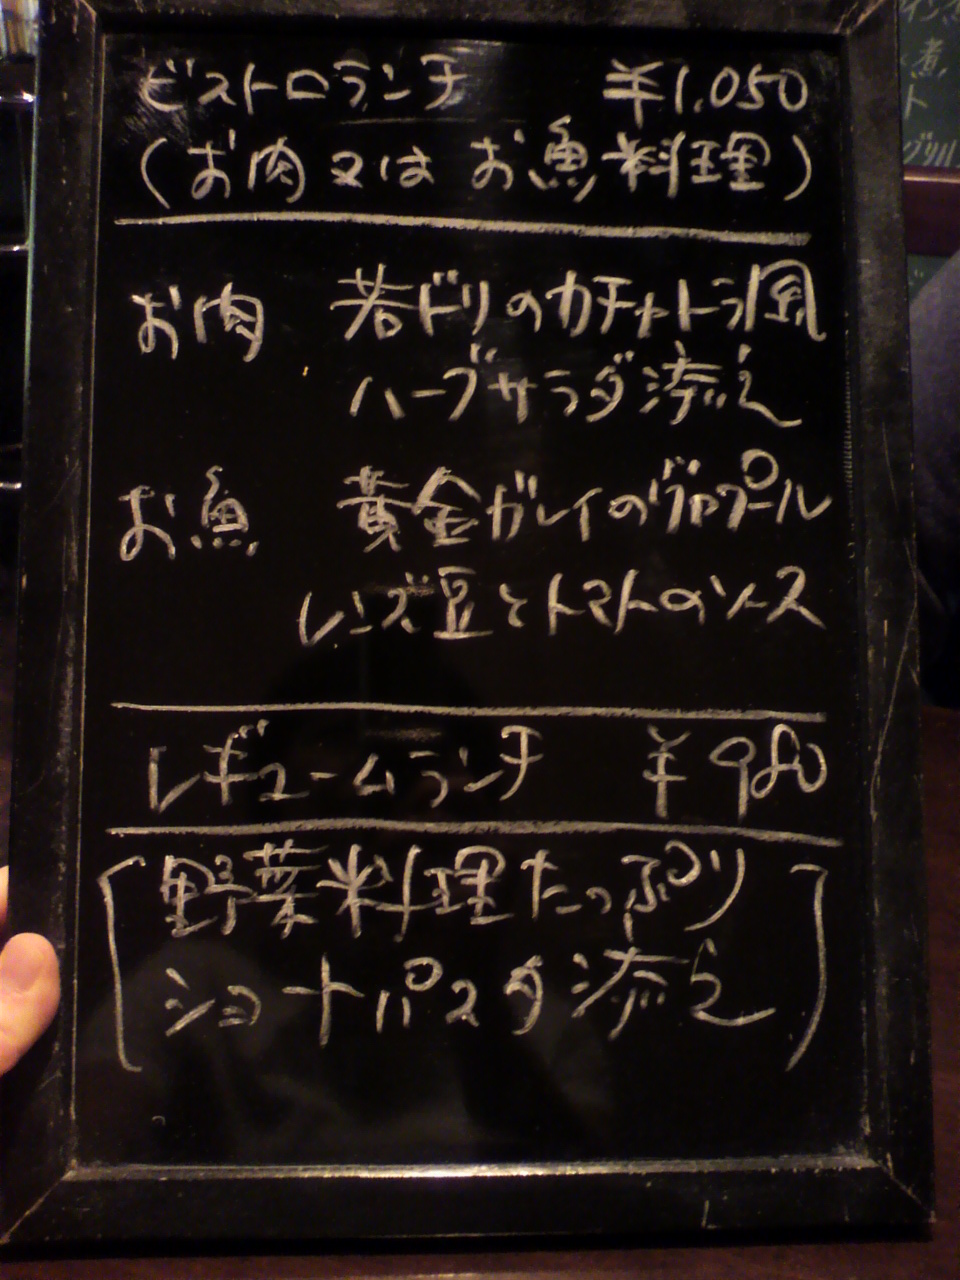 ビストロランチ ¥1,050
(お肉又はお魚料理)
お肉 若ドリのカチャトラ風
ハーブサラダ添え
お魚 黄金ガレイのヴァプール
レンズ豆とトマトのソース
レギュームランチ ¥980
[野菜料理たっぷり
ショートパスタ添え]
煮
ト
グリル